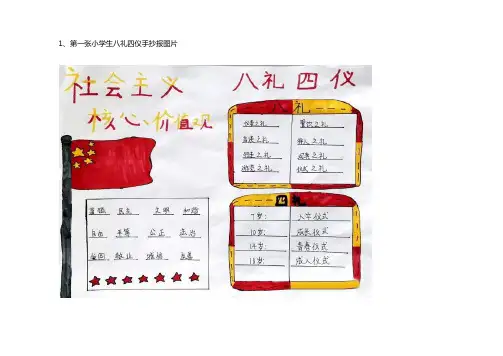 1、第一张小学生八礼四仪手抄报图片
社会主义
核心价值观
富强 民主 文明 和谐
自由 平等 公正 法治
爱国 敬业 诚信 友善
八礼四仪
八 礼
仪表之礼 餐饮之礼
言谈之礼 待人之礼
行走之礼 观赏之礼
游览之礼 仪式之礼
四 礼
7岁: 入学仪式
10岁: 成长仪式
14岁: 青春仪式
18岁: 成人仪式